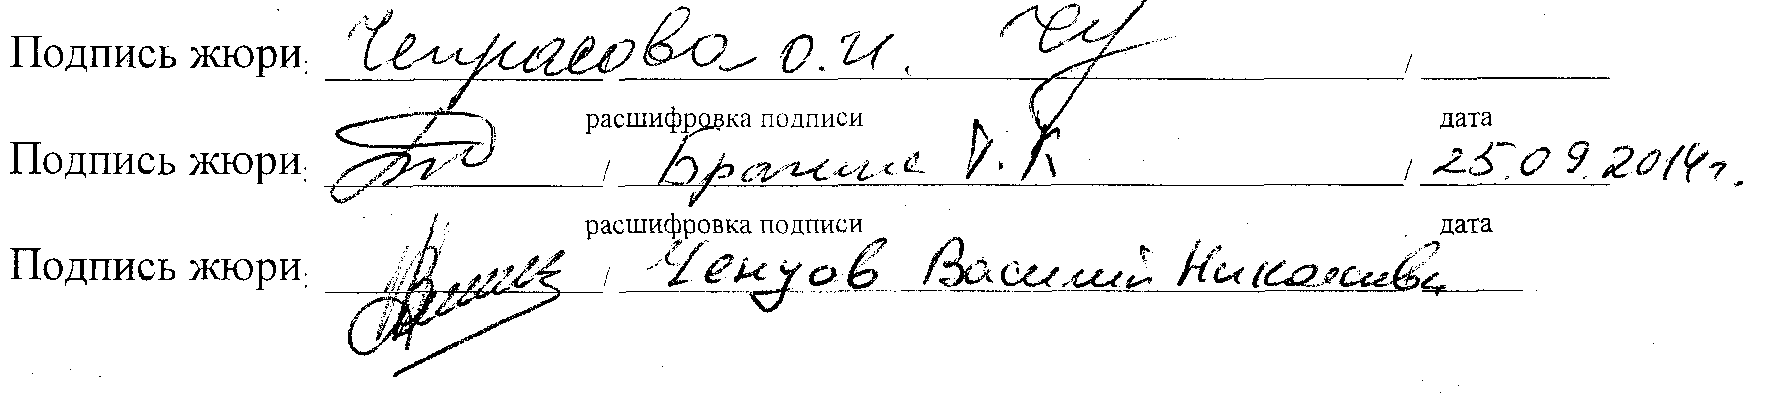 Подпись жюри: Чепрасова О.И. /
расшифровка подписи дата
Подпись жюри: / Д.К / 25.09.2014г.
расшифровка подписи дата
Подпись жюри: / Ченцов Василий Николаевич